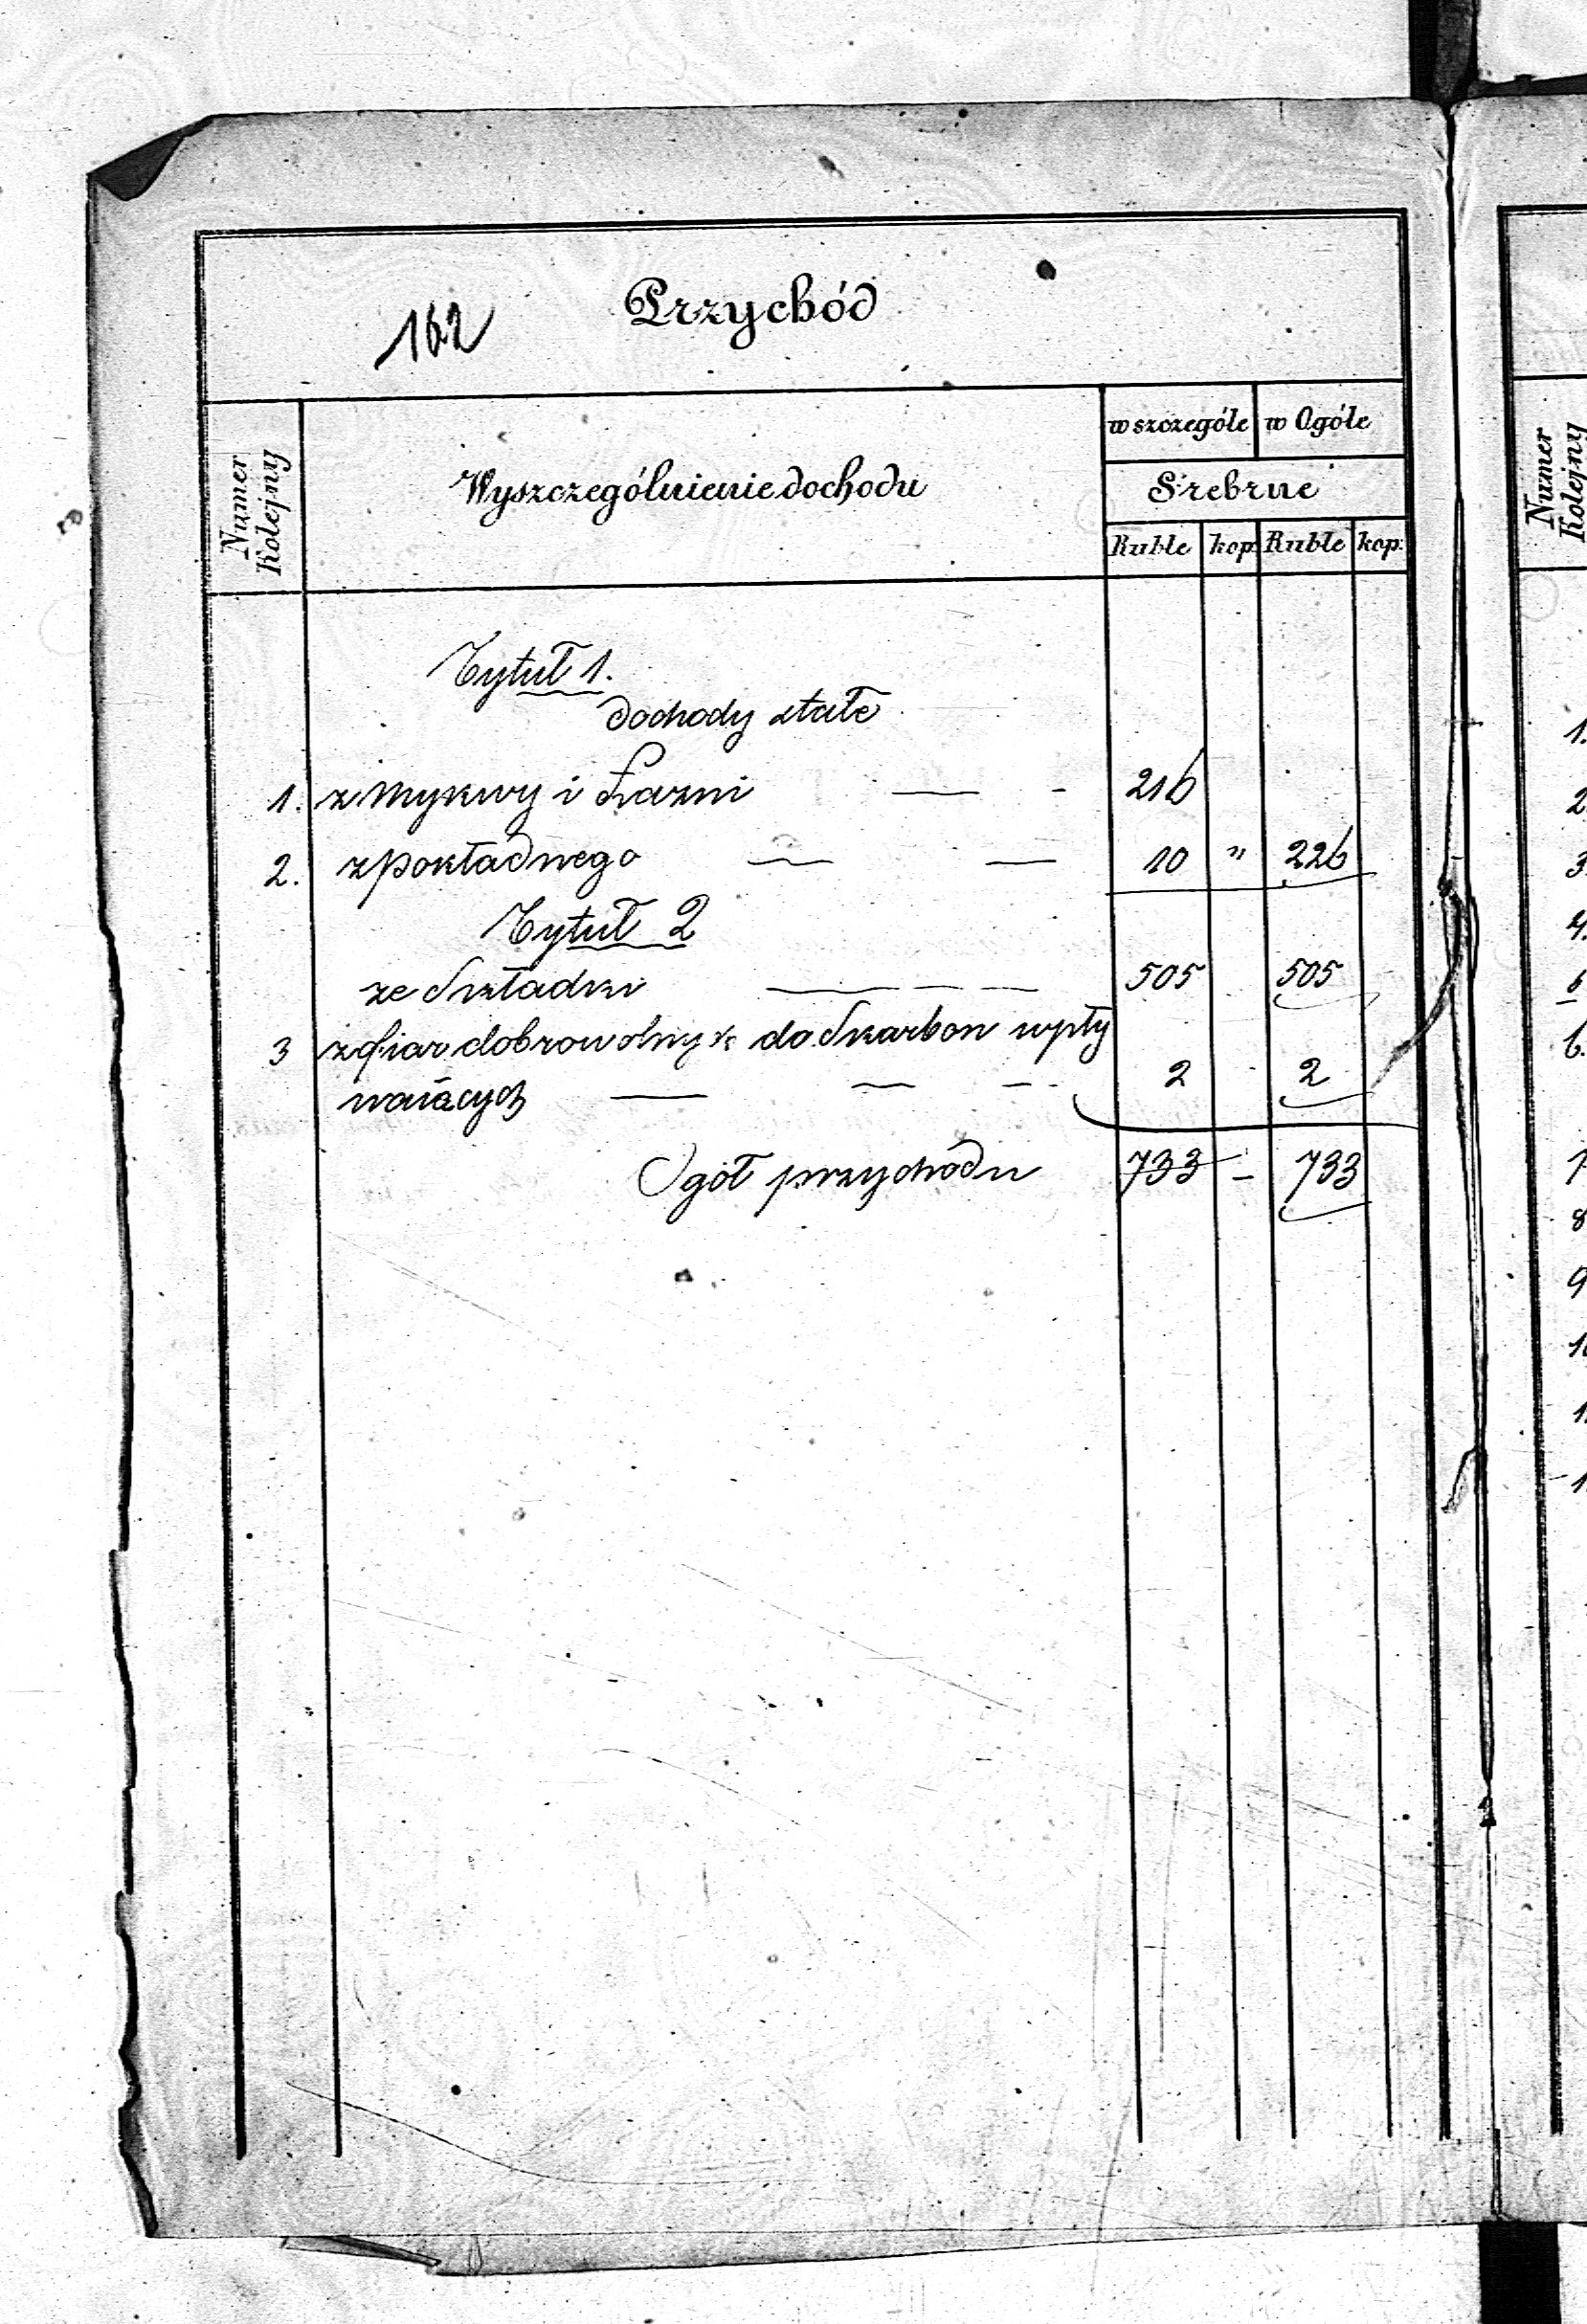 Przychód
162
Numer Kolejny
Wyszczególnienie dochodu
w szczególe
w Ogóle
Srebrne
Ruble
kop.
Ruble
kop.
Tytuł 1.
dochody stałe
1. z Mykwy i Łazni — - 216
2. z pokładnego — — 10 " 226
Tytuł 2
ze Składki — — — 505 505
3 z ofiar dobrowolnych do Skarbon wpły
waiących — — — 2 2
Ogół przychódu 733 — 733
Numer Kolejny
1.
2.
3.
4.
5
6.
7
8
9